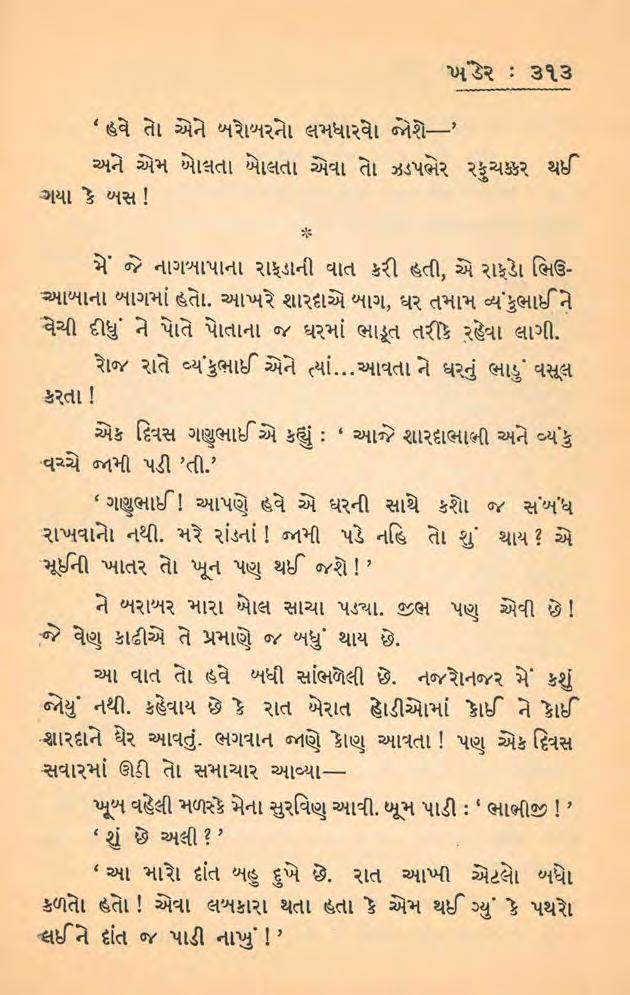 ખંડેર : ૩૧૩
‘ હવે તો એને બરોબરનો લમધારવો જોશે—’
અને એમ બોલતા બોલતા એવા તો ઝડપભેર રફુચક્કર થઈ
ગયા કે બસ !
*
મેં જે નાગબાપાના રાફડાની વાત કરી હતી, એ રાફડો ભિઉ-
આબાના બાગમાં હતો. આખરે શારદાએ બાગ, ઘર તમામ વ્યંકુભાઈને
વેચી દીધું ને પોતે પોતાના જ ઘરમાં ભાડૂત તરીકે રહેવા લાગી.
રોજ રાતે વ્યંકુભાઈ એને ત્યાં...આવતા ને ઘરનું ભાડું વસૂલ
કરતા !
એક દિવસ ગણુભાઈએ કહ્યું : ‘ આજે શારદાભાભી અને વ્યંકુ
વચ્ચે જામી પડી ’તી.’
‘ ગણુભાઈ ! આપણે હવે એ ઘરની સાથે કશો જ સંબંધ
રાખવાનો નથી. મરે રાંડનાં ! જામી પડે નહિ તો શું થાય ? એ
મૂઈની ખાતર તો ખૂન પણ થઈ જશે ! ’
ને બરાબર મારા બોલ સાચા પડ્યા. જીભ પણ એવી છે !
જે વેણ કાઢીએ તે પ્રમાણે જ બધું થાય છે.
આ વાત તો હવે બધી સાંભળેલી છે. નજરોનજર મેં કશું
જોયું નથી. કહેવાય છે કે રાત બેરાત હોડીઓમાં કોઈ ને કોઈ
શારદાને ઘેર આવતું. ભગવાન જાણે કોણ આવતા ! પણ એક દિવસ
સવારમાં ઊઠી તો સમાચાર આવ્યા—
ખૂબ વહેલી મળસ્કે મેના સુરવિણ આવી. બૂમ પાડી : ‘ ભાભીજી ! ’
‘ શું છે અલી ? ’
‘ આ મારો દાંત બહુ દુખે છે. રાત આખી એટલો બધો
કળતો હતો ! એવા લબકારા થતા હતા કે એમ થઈ ગ્યું કે પથરો
લઈને દાંત જ પાડી નાખું ! ’